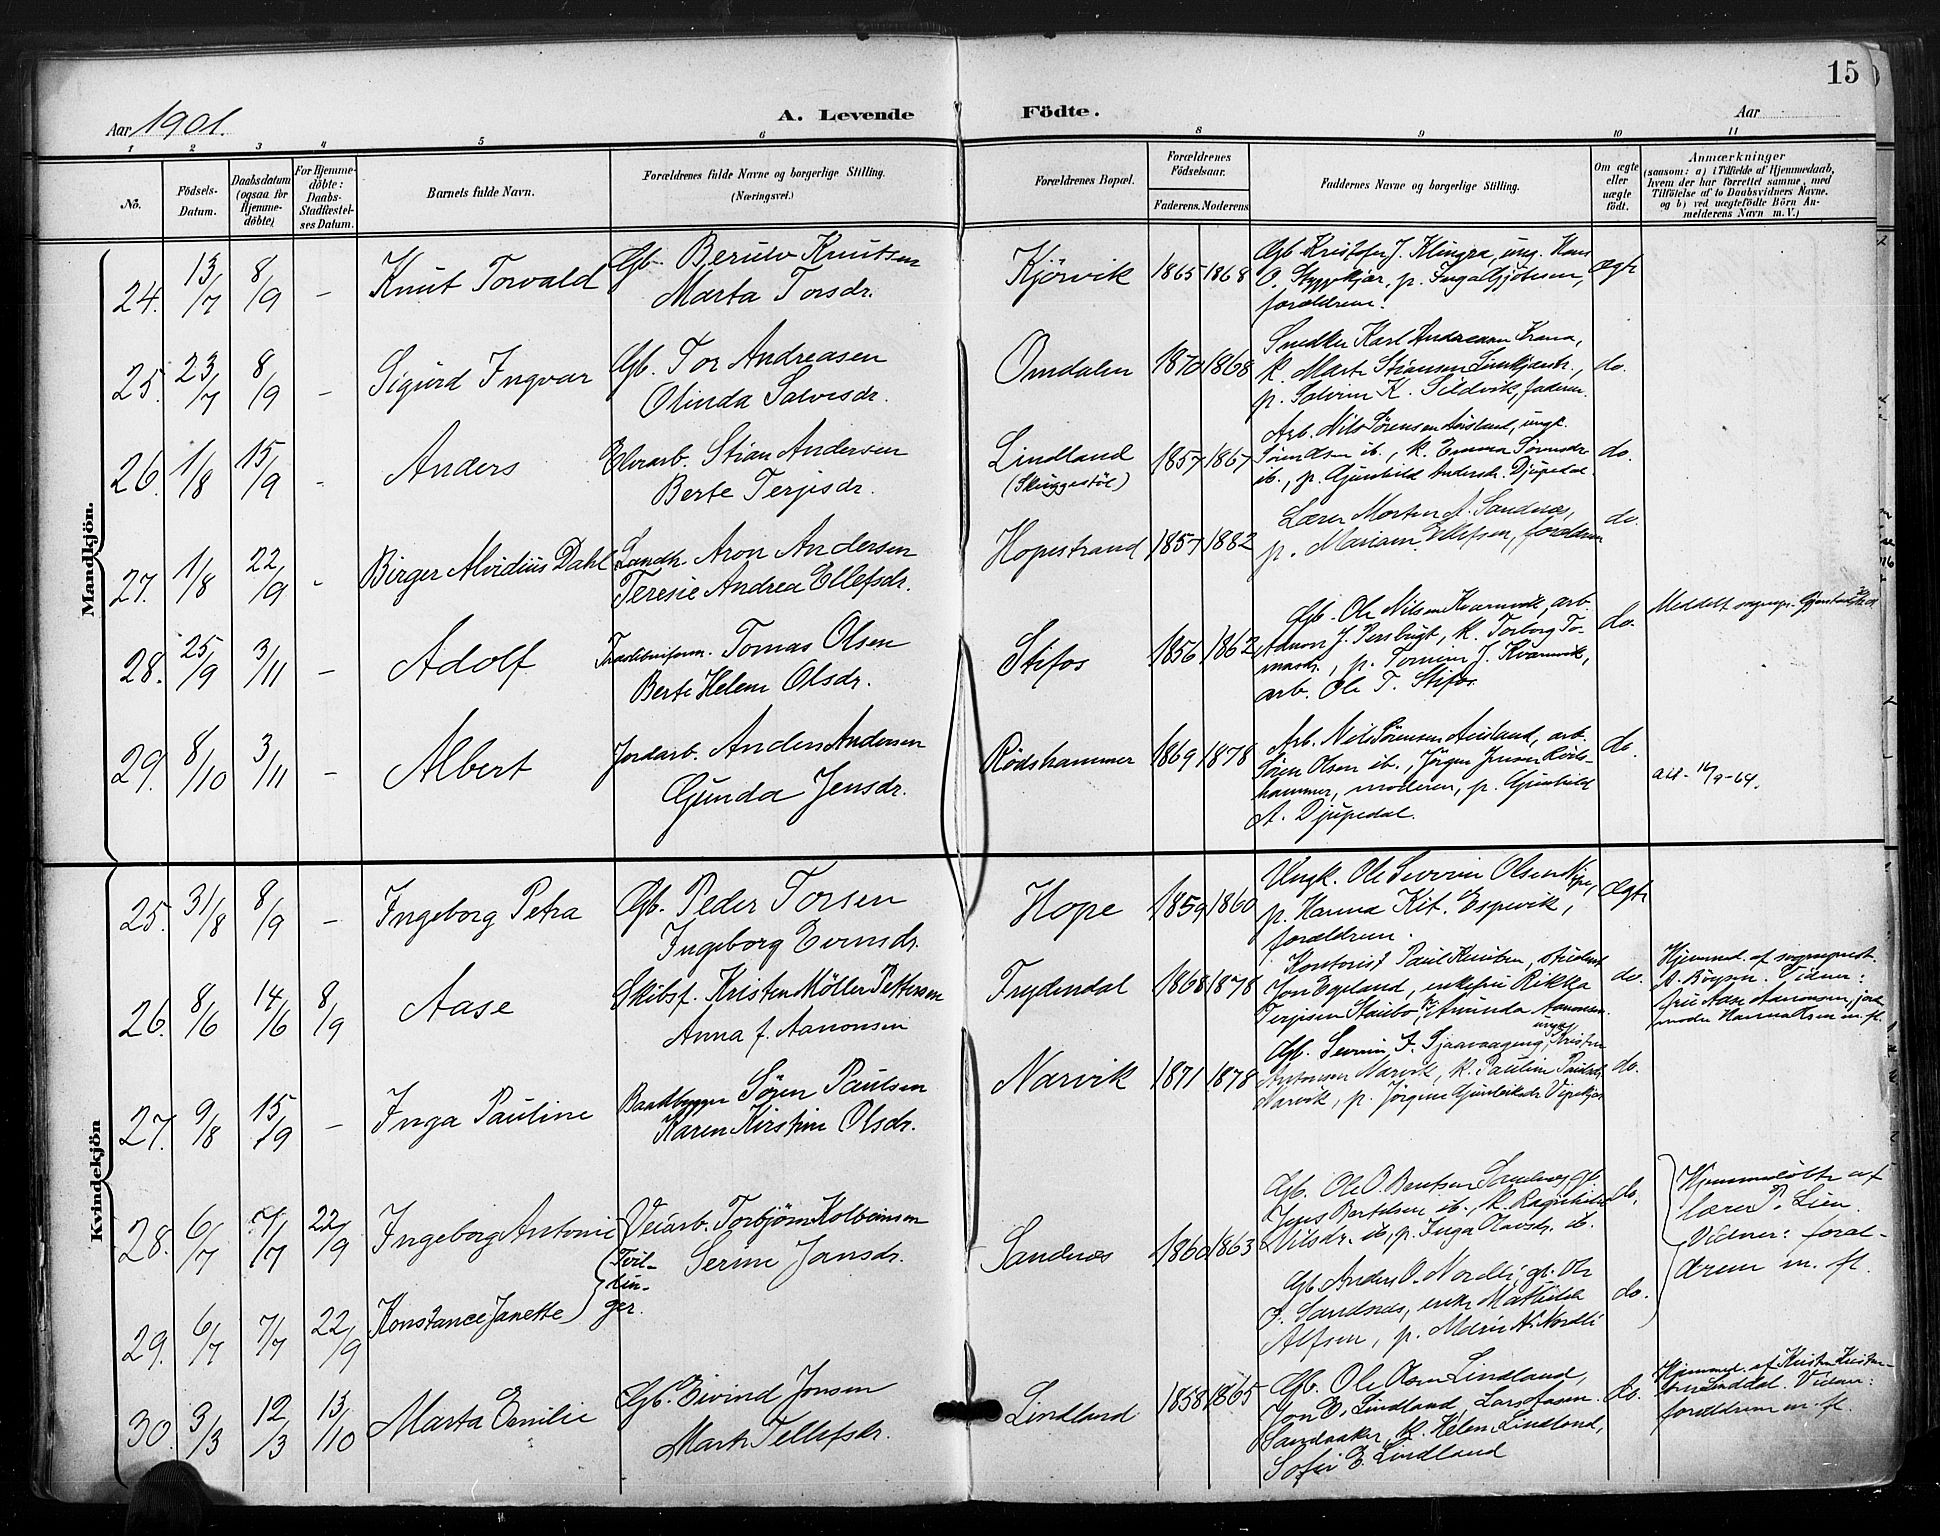 15
Aar 1901.
A. Levende Födte.
Aar
1 2 3 4 5 6 8 9 10 11
No.
Födsels-Datum.
Daabsdatum (ogsaa for Hjemme-döbte).
For Hjemme-döbte: Daabs-Stadfæstel-ses Datum.
Barnets fulde Navn.
Forældrenes fulde Navne og borgerlige Stilling. (Næringsvei.)
Forældrenes Bopæl.
Forældrenes Födselsaar.
Faderens. Moderens.
Faddernes Navne og borgerlige Stilling.
Om ægte eller uægte födt.
Anmærkninger
(saasom: a) i Tilfælde af Hjemmedaab, hvem der har forrettet samme, med Tilföielse af to Daabsvidners Navne. og b) ved uægtefödte Börn An-melderens Navn m. V.)
Mandkjön.
24. 13/7 8/9 – Knut Torvald
Gb. Berulv Knutsen
Marta Torsdr.
Kjörvik 1865 1868
Gb. Kristofer J. Klingra, ung. Hans
O. Stypkjær, p. Inga
forældrene.
ægte
25. 23/7 8/9 – Sigurd Ingvar
Gb. Tor Andreasen
Olinda Salvesdr.
Omdalen 1870 1868
Snedker Karl Andreasen Krana,
k. Marte Stiansen
p. Salvine K. Sildvik, faderen.
do.
26. 1/8 15/9 - Anders
Elvarb. Stian Andersen
Berte Terjesdr.
Lindland
(Skuggestöl)
1857 1867
Arb. Nils Sörensen Auisland, ungk.
ib., k. Emma
ib., p. Gunhild Andersdr. Djupedal
do.
27. 1/8 22/9 - Birger Alvidius Dahl
Landh. Aron Andersen
Teresie Andrea Ellefsdr.
Hopestrand 1857 1882
Lærer Morten A. Sandnes,
p. Mariam Ellefsen, forældrene
do.
28. 25/9 3/11 – Adolf
Tomas Olsen
Berte Helene Olsdr.
Stifos 1856 1862
Gb. Ole Nilsen Kvarmvik, arb.
J. Persbugt, k. Torborg To-
masdr., p. J. Kvarmvik,
arb. Ole T. Stifos
do.
Meddelt sogнepr.
29. 8/10 3/11 – Albert
Jordarb. Anders Andersen
Gunda Jensdr.
Rödshammer 1869 1878
Arb. Nils Sörensen Auisland, arb.
Sören Olsen ib., Jörgen Jensen Röds-
hammer, moderen, p. Gunhild
A. Djupedal.
do.
att-16/9-64.
Kvindekjön
25. 31/8 8/9 – Ingeborg Petra
Gb. Peder Torsen
Ingeborg Evensdr.
Hope 1859 1860
Ungk. Ole Severin Olsen
p. Hanna Kit. Espevik,
forældrene.
Ægte
26. 8/6 14/6 8/9 Aase
Skibsf. Kristen Möller Pettersen
Anna f. Aanonsen
Frydendal 1868 1878
Kontorist Paul Knutsen, student
Jon Egeland, enkefru Rikka
Terjesen Staubo, Amunda Aanonsen.
do.
Hjemmed. af sogneprest
Vidner:
fru Aase Aanonsen, jord-
moder Hanna m. fl.
27. 9/8 15/9 – Inga Pauline
Baadbygger Sören Paulsen
Karen Kirstine Olsdr.
Narvik 1871 1878
Gb. Severin F. ungk. Kristen
Antonsen Narvik, k. Pauline Paulsdr.
Narvik, p. Jörgine
do.
28. 6/7 7/7 22/9 Ingeborg Antonie
Veiarb. Torbjörn Kolbeinsen
Serine Jansdr.
Sandnes 1860 1863
Gb. Ole O. Berntsen Sandnes, gb.
Jens Bertelsen ib., k. Ragnhild
Nilsdr. ib., p. Inga Olavsdr. ib.
do.
Hjemmedöbte af
lærer P. Lien.
Vidner: foræl-
drene m. fl.
(Tvil-
lin-
ger.
29. 6/7 7/7 22/9 Konstance Janette
Gb. Anders O. Nordli, gb. Ole
J. Sandnes, enke Mathilde
Alfsen, p. Marie N. Nordli
do.
30. 3/3 12/3 13/10 Marta Emilie
Gb. Eivind Jonsen
Marte Tellefsdr.
Lindland 1858 1865
Gb. Ole Olsen Lindland,
Jon E. Lindland, Lars
Sandaaker, k. Helene Lindland,
Sofie E. Lindland
do.
Hjemmed. af Kristen Kristen-
sen Lindal. Vidner:
forældrene m. fl.